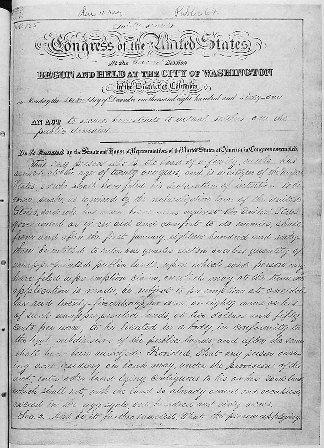 Congress of the United States,
At the Second Session
BEGUN AND HELD AT THE CITY OF WASHINGTON
in the District of Columbia
on Monday the Second day of December one thousand eight hundred and Sixty-one
AN ACT to secure homesteads to actual settlers on the
public domain.
Be it Enacted by the Senate and House of Representatives of the United States of America in Congress assembled,
That any person who is the head of a family, or who has
arrived at the age of twenty one years, and is a citizen of the United
States, or who shall have filed his declaration of intention to be-
come such, as required by the naturalization laws of the United
States, and who has never borne arms against the United States
Government or given aid and comfort to its enemies, shall,
from and after the first January, eighteen hundred and sixty
three, be entitled to enter one quarter section or a less quantity of
unappropriated public lands, upon which said person may
have filed a preemption claim, or which may, at the time the
application is made, be subject to preemption at one dol-
lar and twenty five cents, or less, per acre; or eighty acres or less
of such unappropriated lands, at two dollars and fifty
cents per acre, to be located in a body, in conformity to
the legal subdivisions of the public lands, and after the same
shall have been surveyed: Provided, That any person own-
ing and residing on land may, under the provisions of this
act, enter other land lying contiguous to his or her said land,
which shall not, with the land so already owned and occupied,
exceed in the aggregate one hundred and sixty acres.
Sec. 2. And be it further enacted, That the person applying